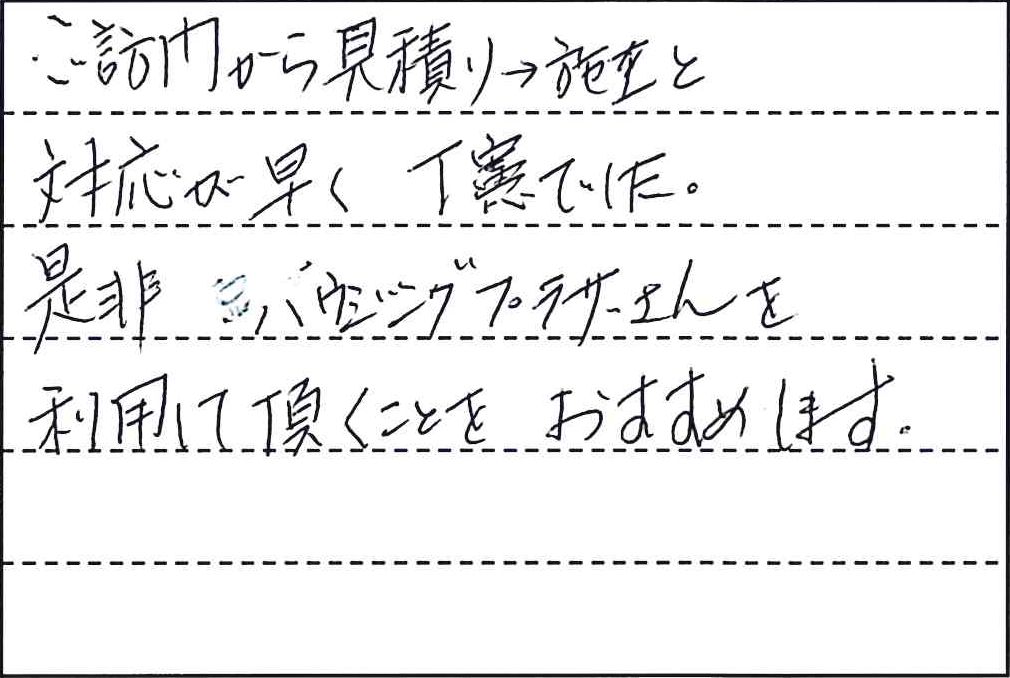 ご訪問から見積り→施工と
対応が早く 丁寧でした。
是非 ハウジングプラザーさんを
利用して頂くことを おすすめします。